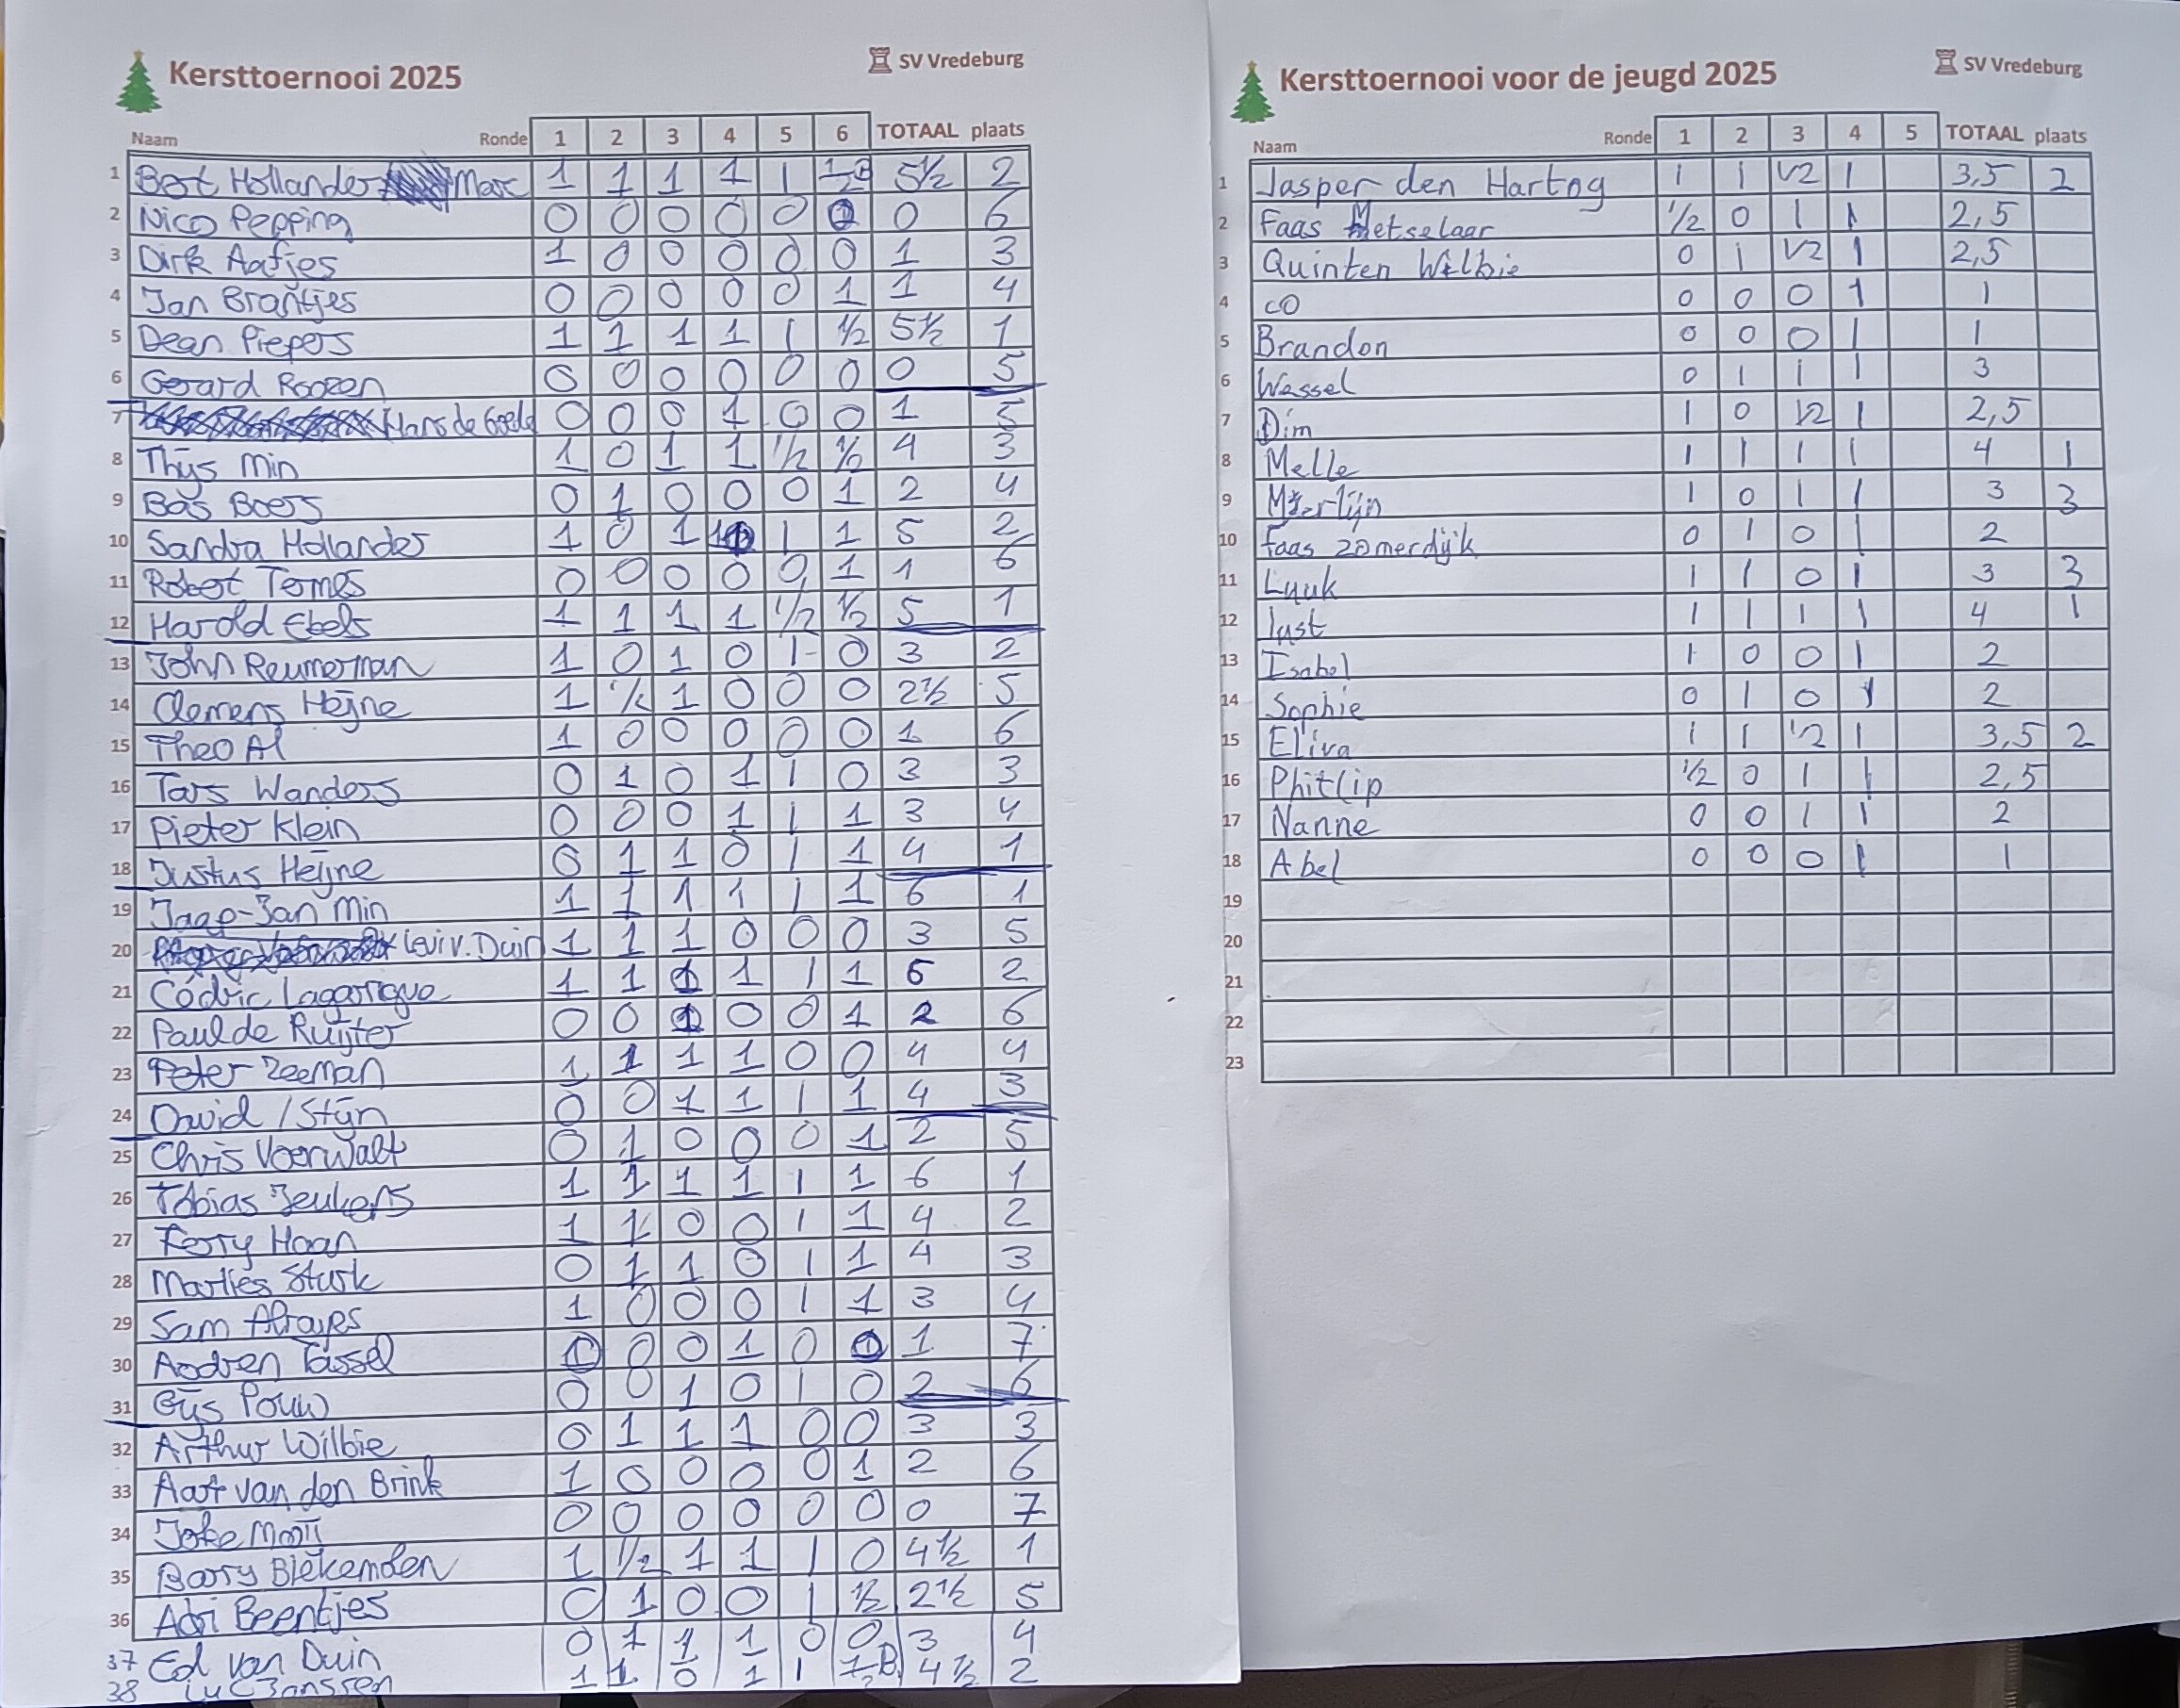 Kersttoernooi 2025 SV Vredeburg
Naam Ronde 1 2 3 4 5 6 TOTAAL plaats
1 Bert Hollander Marc 1 1 1 1 1 ½ 5½ 2
2 Nico Pepping 0 0 0 0 0 0 0 6
3 Dirk Aafjes 1 0 0 0 0 0 1 3
4 Jan Brantjes 0 0 0 0 0 1 1 4
5 Dean Piepers 1 1 1 1 1 ½ 5½ 1
6 Gerard Roozen 0 0 0 0 0 0 0 5
7 Hans de Goede 0 0 0 1 0 0 1 5
8 Thijs Min 1 0 1 1 ½ ½ 4 3
9 Bas Boers 0 1 0 0 0 1 2 4
10 Sandra Hollander 1 0 1 1 1 1 5 2
11 Robert Temes 0 0 0 0 0 1 1 6
12 Harold Ebels 1 1 1 1 ½ ½ 5 1
13 John Reumerman 1 0 1 0 1 0 3 2
14 Clemens Heijne 1 ½ 1 0 0 0 2½ 5
15 Theo Al 1 0 0 0 0 0 1 6
16 Tars Wanders 0 1 0 1 1 0 3 3
17 Pieter Klein 0 0 0 1 1 1 3 4
18 Justus Heijne 0 1 1 0 1 1 4 1
19 Jaap-Jan Min 1 1 1 1 1 1 6 1
20 Levi v. Duin 1 1 1 0 0 0 3 5
21 Cédric Lagarrigue 1 1 1 1 1 2
22 Paul de Ruijter 0 0 0 0 1 2 6
23 Peter Zeeman 1 1 1 1 0 0 4 4
24 David / Stijn 0 0 1 1 1 1 4 3
25 Chris Voorwalt 0 1 0 0 0 1 2 5
26 Tobias Jeukens 1 1 1 1 1 1 6 1
27 Ferry Haan 1 1 0 0 1 1 4 2
28 Marlies Sturk 0 1 1 0 1 1 4 3
29 Sam Alrayes 1 0 0 0 1 1 3 4
30 Aodren Tassel 0 0 1 0 0 1 7
31 Gijs Pouw 0 0 1 0 1 0 2 6
32 Arthur Wilbie 0 1 1 1 0 0 3 3
33 Aart van den Brink 1 0 0 0 0 1 2 6
34 Joke Mooij 0 0 0 0 0 0 0 7
35 Barry Blekemolen 1 ½ 1 1 1 0 4½ 1
36 Adri Beentjes 0 1 0 0 1 ½ 2½ 5
37 Ed van Duin 0 1 1 1 0 0 3 4
38 Luc Janssen 1 1 0 1 1 ½ 4½ 2
Kersttoernooi voor de jeugd 2025 SV Vredeburg
Naam Ronde 1 2 3 4 5 TOTAAL plaats
1 Jasper den Hartog 1 1 ½ 1 3,5 2
2 Faas Metselaar ½ 0 1 1 2,5
3 Quinten Wilbie 0 1 ½ 1 2,5
4 CO 0 0 0 1 1
5 Brandon 0 0 0 1 1
6 Wessel 0 1 1 1 3
7 Dim 1 0 ½ 1 2,5
8 Melle 1 1 1 1 4 1
9 Merlijn 1 0 1 1 3 3
10 faas zomerdijk 0 1 0 1 2
11 Luuk 1 1 0 1 3 3
12 Just 1 1 1 1 4 1
13 Isabel 1 0 0 1 2
14 Sophie 0 1 0 1 2
15 Eliva 1 1 ½ 1 3,5 2
16 Phitlip ½ 0 1 1 2,5
17 Nanne 0 0 1 1 2
18 Abel 0 0 0 1 1
19
20
21
22
23